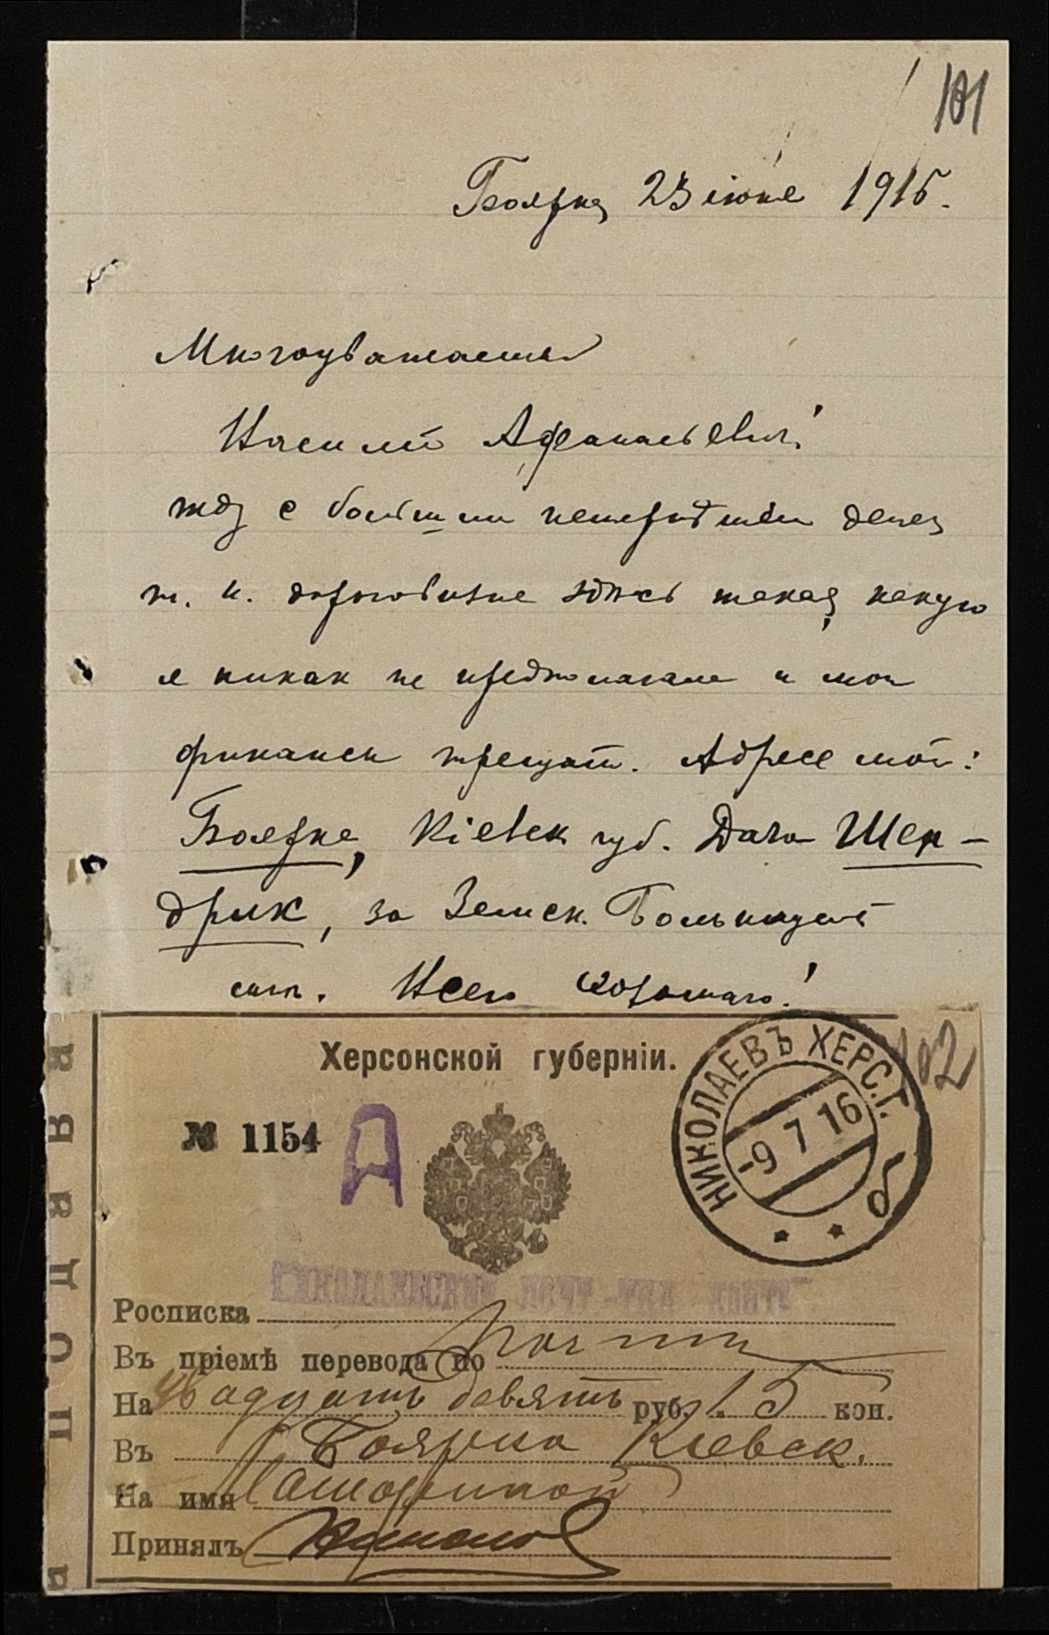 101
Боярка, 23 іюня 1916.
Многоуважаемый
Василій Афанасьевич!
жду с большим нетерпѣніем денег
т. к. дороговизна здѣсь такая, какую
я никак не предполагала и мои
финансы трещат. Адрес мой:
Боярка, Кіевск губ. Дача Шен-
дрик, за Земск. Больницей
Всего хорошаго!
102
Херсонской губерніи.
№ 1154 А
НИКОЛАЕВЪ ХЕРС.Г.
-9 7 16
б
НИКОЛАЕВСКАЯ ПОЧТ-ТЕЛ КОНТ
Росписка
Въ пріемѣ перевода по почт
На двадцать девять руб. 15 коп.
Въ Боярка Кіевск.
На имя
Принялъ
ПОДАВА